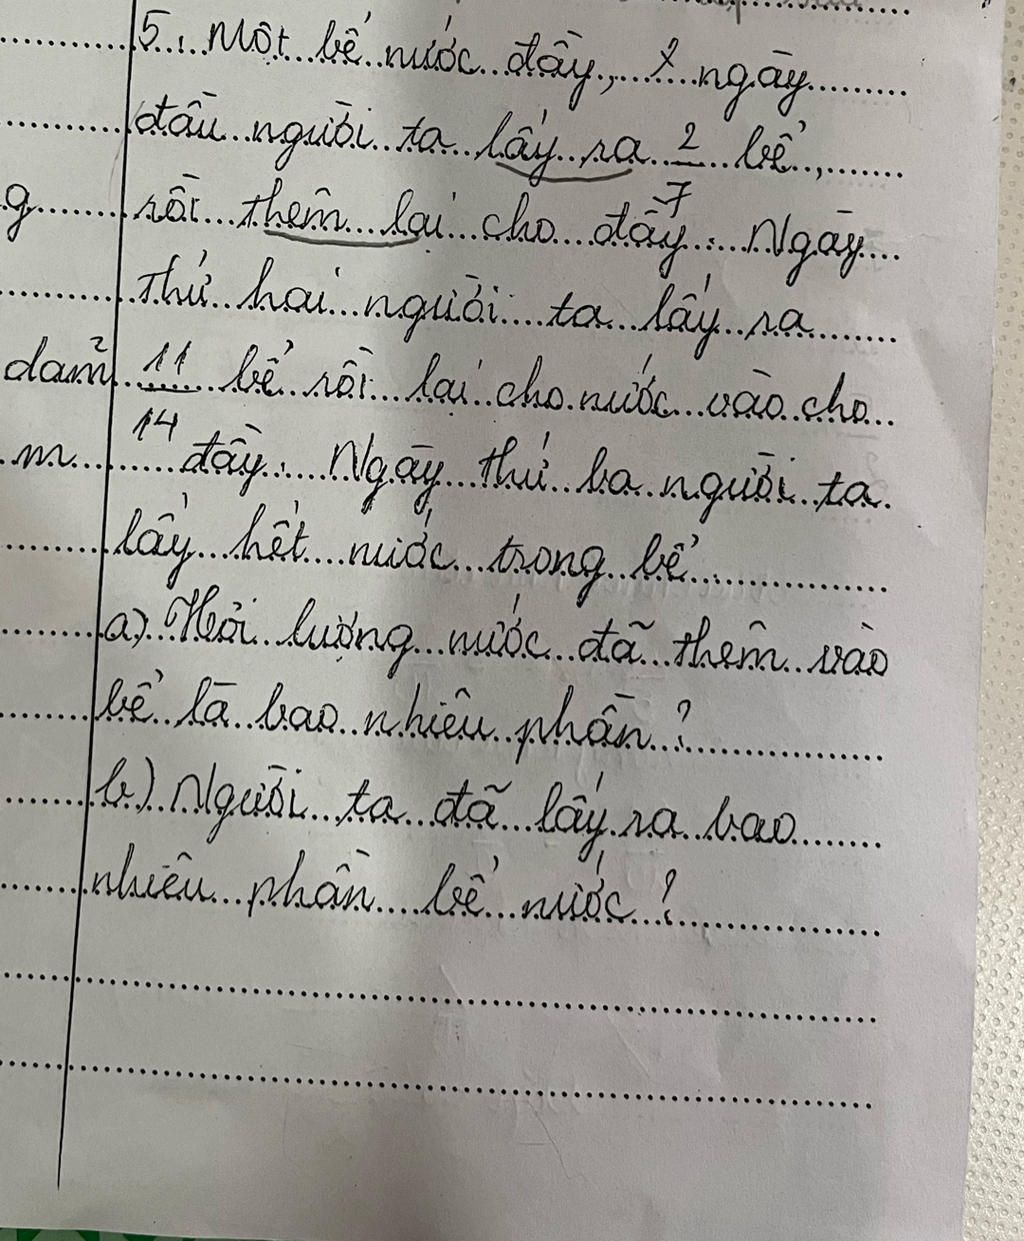 5. Một bể nước đầy, 2 ngày
đầu người ta lấy ra 2/7 bể,
rồi thêm lại cho đầy. Ngày
thứ hai người ta lấy ra
11/14 bể rồi lại cho nước vào cho
đầy. Ngày thứ ba người ta
lấy hết nước trong bể
a) Hỏi lượng nước đã thêm vào
bể là bao nhiêu phần?
b) Người ta đã lấy ra bao
nhiêu phần bể nước?
g
dam²
m